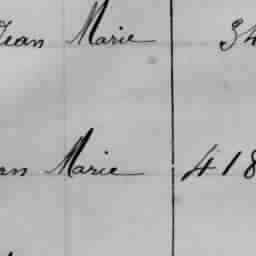 Jean Marie 34
an Marie 418